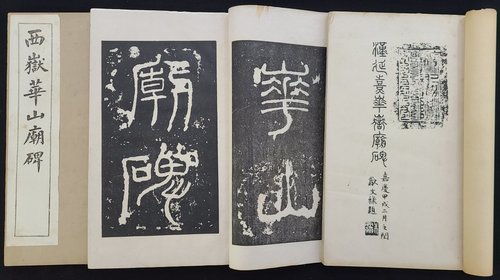 西嶽華山廟碑
漢延熹華嶽廟碑
嘉慶甲戌二月
華山
廟碑